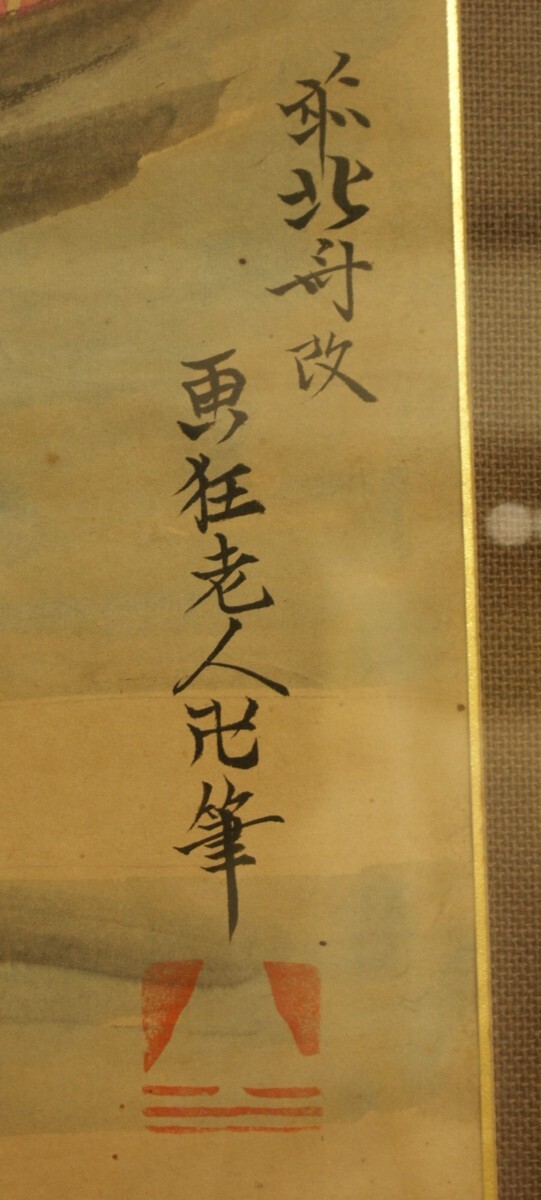 前北斎改
画狂老人卍筆